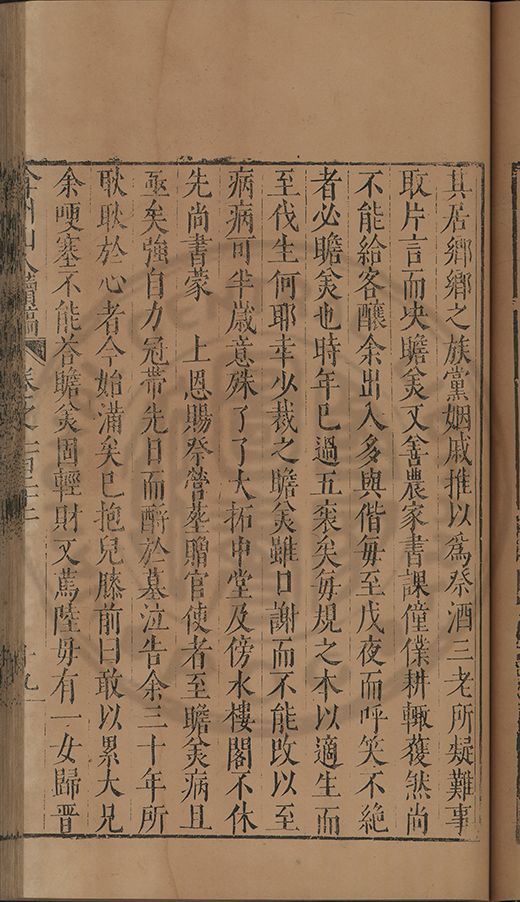 其居鄉鄉之族黨姻戚推以為祭酒三老所疑難事
取片言而央瞻美又善農家書課僮僕耕輙穫然尚
不能給客釀余出入多與偕每至戊夜而呼笑不絶
者必瞻美也時年已過五袠矣每規之本以適生而
至伐生何耶幸少裁之瞻美雖口謝而不能改以至
病病可半歲意殊了了大拓中堂及傍水樓閣不休
先尚書蒙 上恩賜祭營塟贈官使者至瞻美病且
亟矣強自力冠帶先日而酹於墓泣告余三十年所
耿耿於心者今始滿矣已抱兒膝前曰敢以累大兄
余哽塞不能荅瞻美固輕財又薦陸毋有一女歸晋
弇州山人續稿 卷之一百三十三 十九